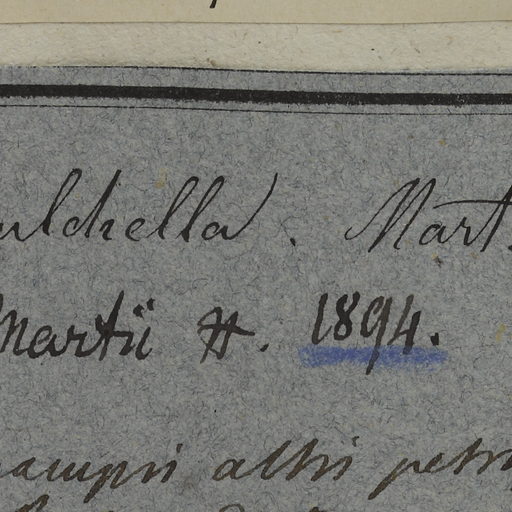 ulchella. Mart.
Martii #. 1894.
campis altis petr